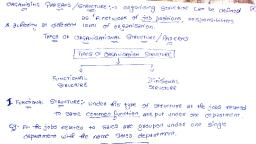 ORGANISING PROCESS/STRUCTURE:→ organising structure can be defined
as "A network of job positions, responsibilities
& authority at different levels of organisation.
TYPES OF ORGANISATIONAL STRUCTURE / PROCESS
TYPES OF ORGANISATION STRUCTURE
FUNCTIONAL STRUCTURE
DIVISIONAL STRUCTURE
1. FUNCTIONAL STRUCTURE: under this type of structure all the jobs related
to same common function are put under one department
Eg:- All the jobs related to sales are grouped under one single
department with the name sales department.